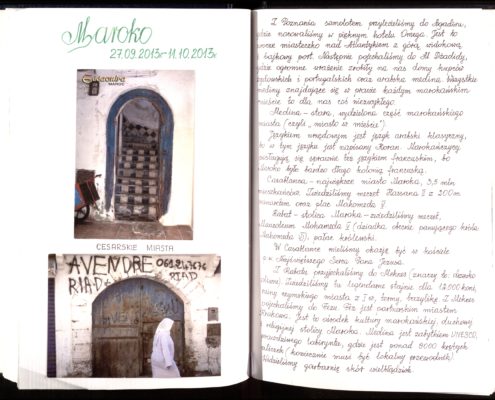 Maroko
27.09.2013r-11.10.2013r
Essaouira
MAROC
CESARSKIE MIASTA
AVENDRE
RIAD
RIAD
Z Poznania samolotem przylecieliśmy do Agadiru,
gdzie nocowaliśmy w pięknym hotelu Omega. Jest to
urocze miasteczko nad Atlantykiem z górą widokową
bajkowy port. Następnie pojechaliśmy do El Jadidy,
gdzie ogromne wrażenie zrobiły na nas domy kupców
żydowskich i portugalskich oraz arabska medina. Wszystkie
mediny znajdujące się w prawie każdym marokańskim
mieście to dla nas coś niezwykłego.
Medina - stara, wydzielona część marokańskiego
miasta (czyli "miasto w mieście")
Językiem urzędowym jest język arabski klasyczny,
bo w tym języku jest napisany Koran. Marokańczycy
posługują się sprawnie też językiem francuskim, bo
Maroko było bardzo długo kolonią francuską.
Casablanca - największe miasto Maroka, 3,5 mln
mieszkańców. Zwiedziliśmy meczet Hassana II z 200m
minaretem oraz plac Mohameda V.
Rabat - stolica Maroka - zwiedziliśmy meczet,
Mauzoleum Mohameda V (dziadka obecnie panującego króla
Mohameda VI), pałac królewski.
W Casablance mieliśmy okazję być w kościele
p.w. Najświętszego Serca Pana Jezusa.
Z Rabatu przyjechaliśmy do Meknes
Zwiedziliśmy tu legendarne stajnie dla 12000 koni,
ruiny rzymskiego miasta z I w, termy, bazylikę. Z Meknes
pojechaliśmy do Fezu. Fez jest
Jest to ośrodek kultury marokańskiej, duchowy
religijny stolicy Maroka. Medina jest zabytkiem UNESCO,
labirynta, gdzie jest ponad 9000 krętych
uliczek (koniecznie musi być lokalny przewodnik).
Widzieliśmy garbarnię skór wielbłądzich.